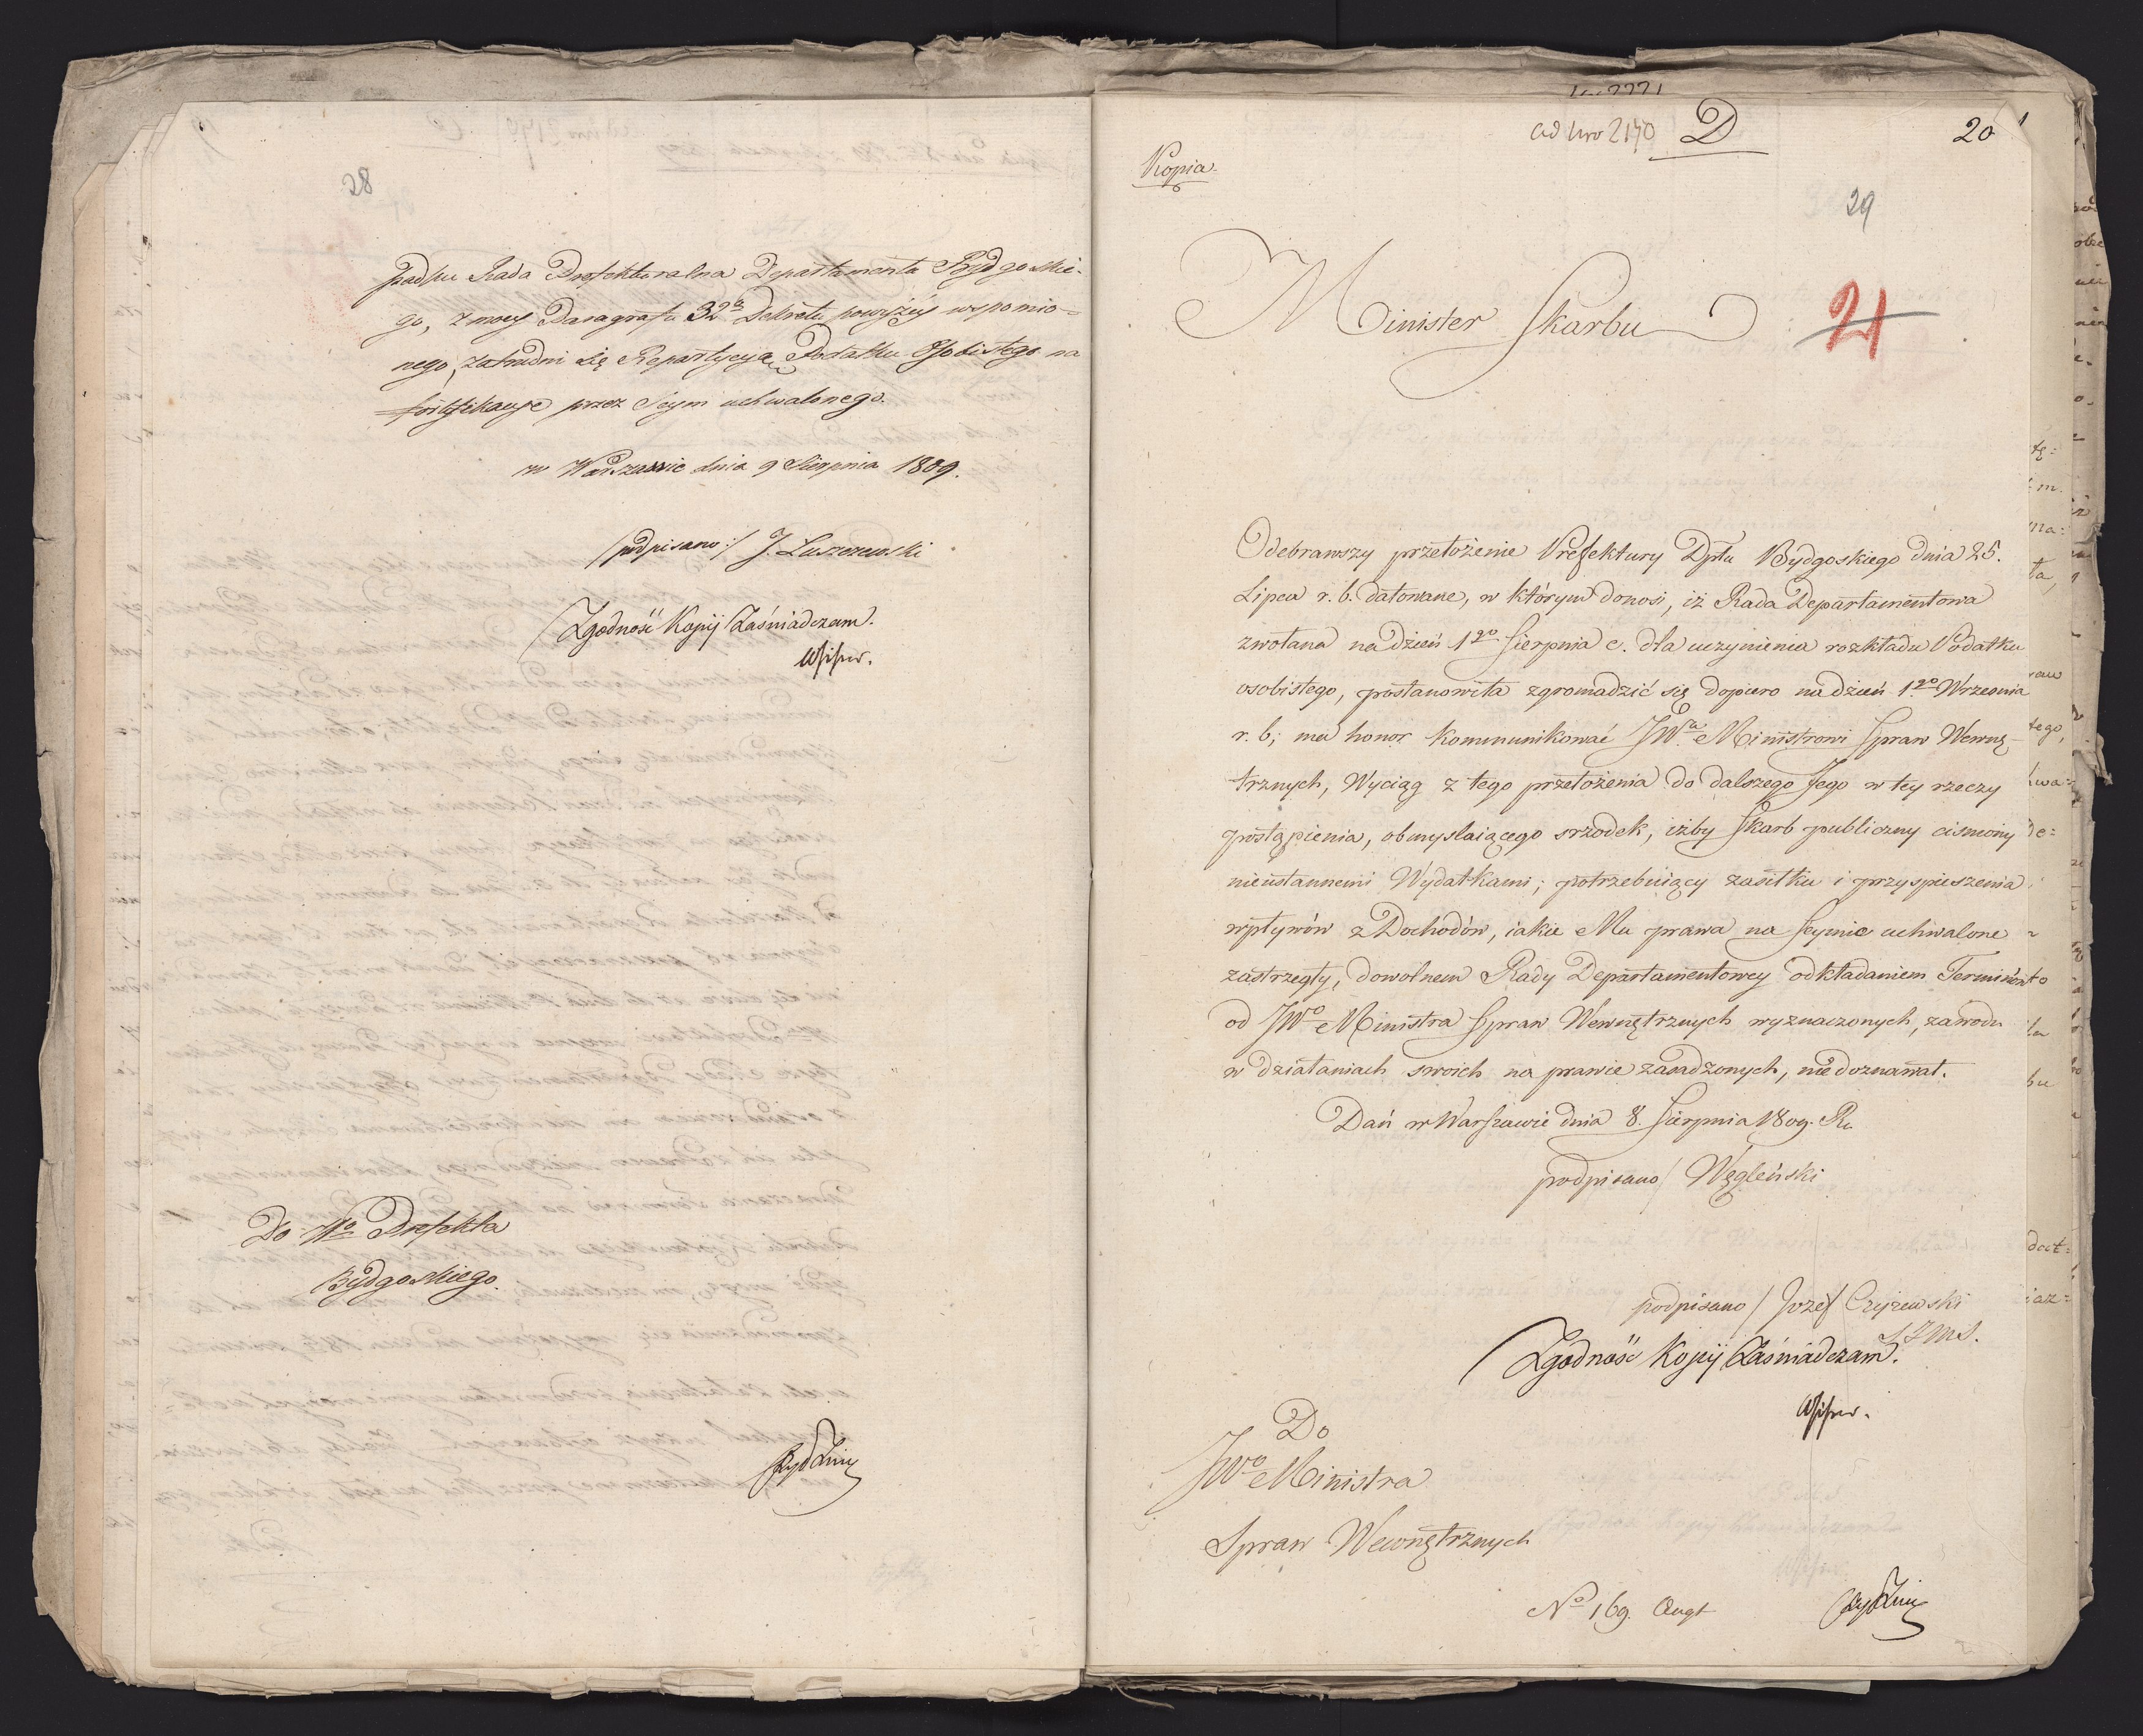 28
padku Rada Prefekturalna Departamentu Bydgoskie-
go, z mocy Paragrafu 32go Dekretu powyżéy wspomio=
nego, zatrudni się Repartycyją Podatku Osobistego na
fortyfikacye przez Seym uchwalonego.
w Warszawie dnia 9 Sierpnia 1809.
/podpisano:/ J. Łuszczewski
Zgodność Kopij Zaświadczam.
Do Wo Prefekta
Bydgoskiego.
ad Nro 2170 D 20
Kopia
29
Minister Skarbu
21
Odebrawszy przełożenie Prefektury Dptu Bydgoskiego dnia 25.
Lipca r. b. datowane, w którym donosi, iż Rada Departamentowa
zwołana na dzień 1go Sierpnia c. dla uczynienia rozkładu Podatku
osobistego, postanowiła zgromadzić się dopiero na dzień 1go Września
r. b; ma honor kommunikować JWu Ministrowi Spraw Wewnę-
trznych, Wyciąg z tego przełożenia do dalszego Jego w tey rzeczy
postąpienia, obmyslaiącego srzodek, iżby Skarb publiczny cisniony
nieustannemi Wydatkami; potrzebuiący zasiłku i przyspieszenia
wpływów z Dochodów, iakie Mu prawa na Seymie uchwalone
zastrzegły, dowolnem Rady Departamentowey odkładaniem Terminów
od JWo Ministra Spraw Wewnętrznych wyznaczonych, zawodu
w działaniach swoich na prawie zasadzonych, nie doznawał.
Dań w Warszawie dnia 8. Sierpnia 1809. Ru
podpisano/ Węgleński
podpisano / Jozef
Zgodność Kopij Zaświadczam.
Do
JWo Ministra
Spraw Wewnętrznych
No 169. Augt